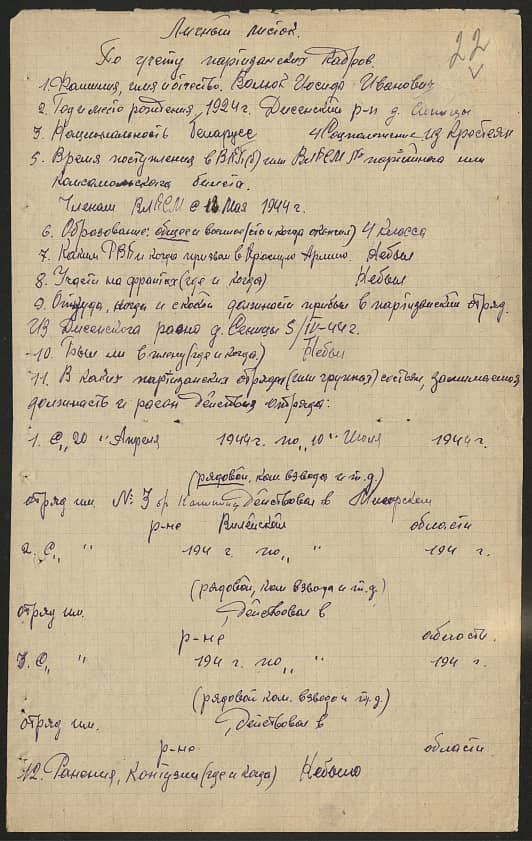 Личный листок.
22
По учету партизанских кадров.
1. Фамилия, имя и отчество. Валюк Иосифа Иванович
2. Год и место рождения, 1924 г. Дисенский р-н д. Синицы
3. Национальность беларусс 4 Соцположение из крестьян
5. Время поступления в ВКП(б) или ВЛКСМ № партийного или
комсомольского билета.
Членом ВЛКСМ с Мая 1944 г.
6. Образование: общее и военное (что и когда окончил) 4 класса
7. Каким РВК и когда призван в Красную Армию. Небыл
8. Участи на фронтах (где и когда) Небыл
9. Откуда, когда и с какой должности прибыл в партизанский отряд.
Из Дисенского раёна д. Сеницы 5/IV-44 г.
10. Был ли в плену (где и когда) Небыл
11. В каких партизанских отрядах (или группах) состоял, занимаемая
должность и раён действия отряда:
1. С „20" Апреля 1944 г. по „10" Июля 1944 г.
(рядовой, ком взвода и т.д.)
отряд им. № 3 бр Калинина действовал в Миорском
р-не Вилейской области
2. С „ " 194 г. по „ " 194 г.
(рядовой, ком взвода и т.д.)
отряд им. , действовал в
р-не области.
3. С „ " 194 г. по „ " 194 г.
(рядовой ком. взвода и т.д.)
отряд им. , действовал в
р-не области
12. Ранения, контузии (где и когда) Небыло